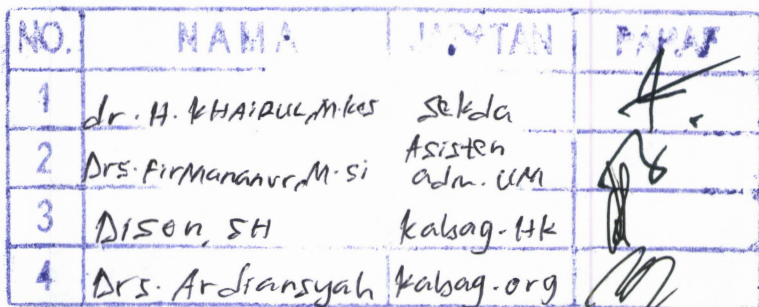 NO. NAMA JABATAN PARAF
1 dr. H. KHAIRUL, M.kes Sekda
2 Drs. Firmananur, M.si Asisten adm. UM
3 Dison, SH kabag-Hk
4 Drs. Ardiansyah kabag-org